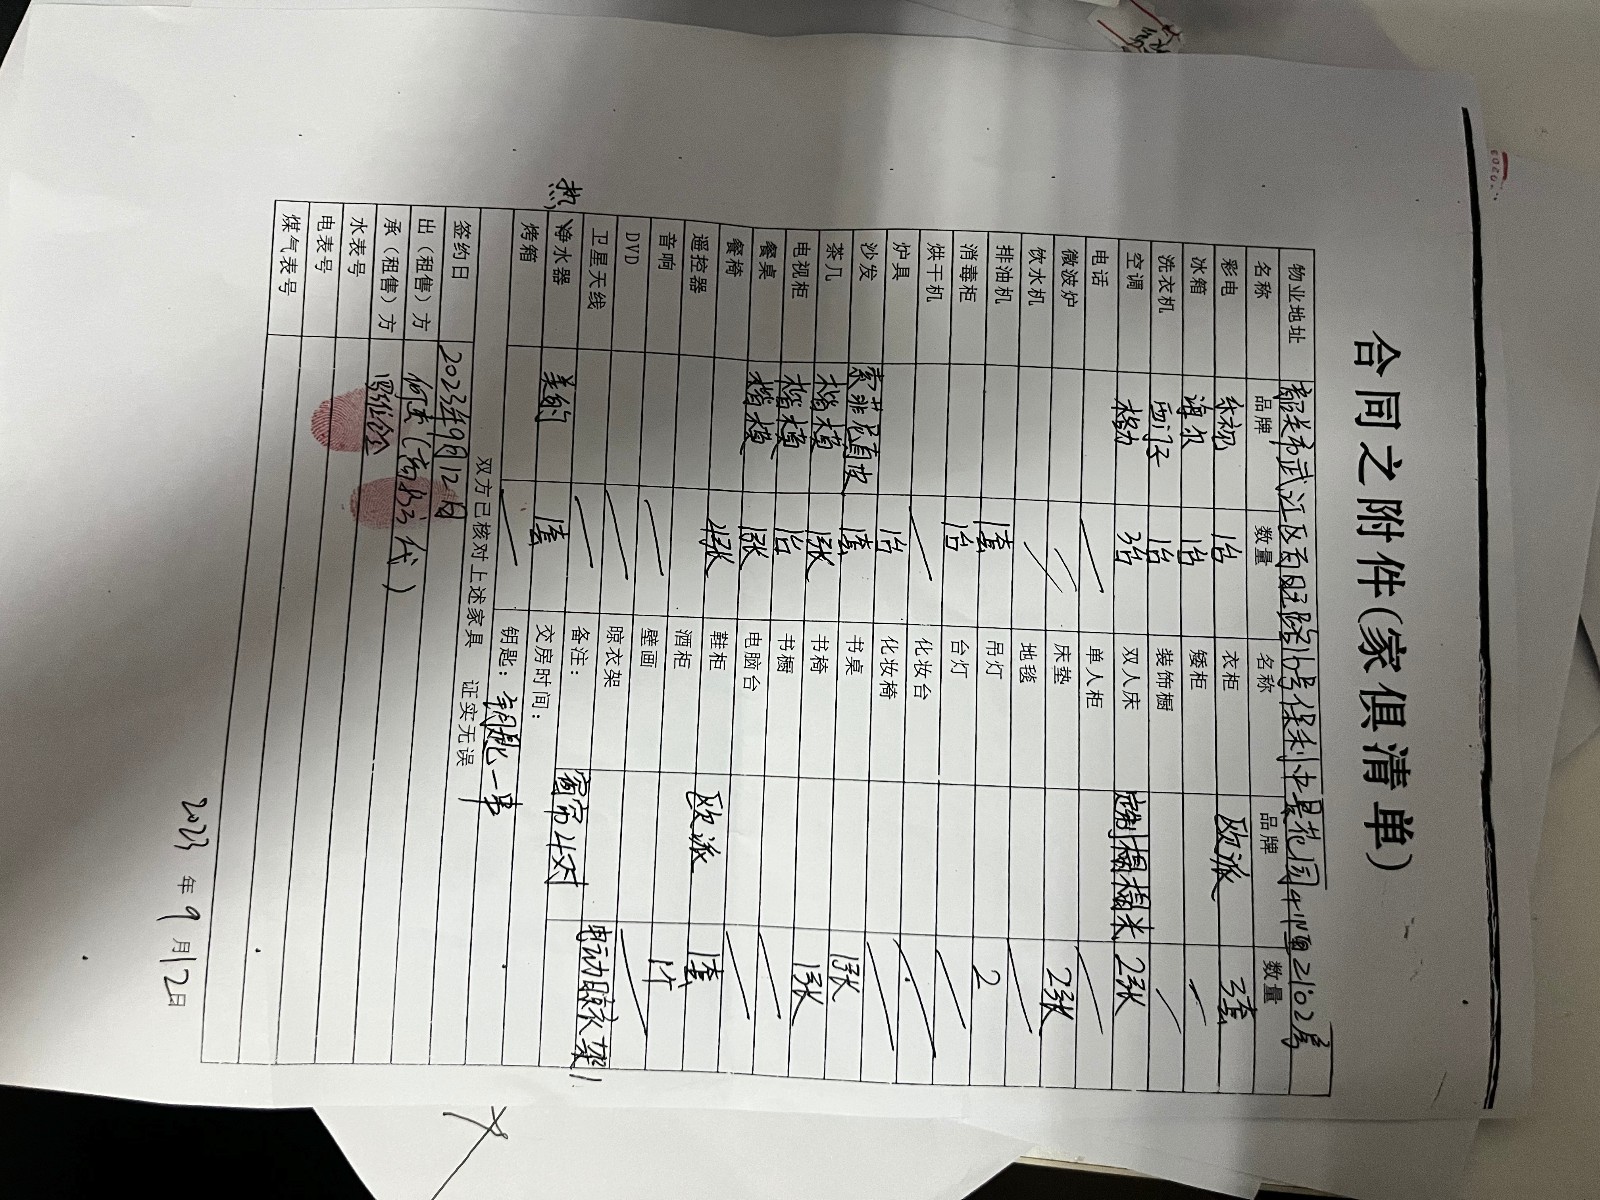 合同之附件(家俱清单)
物业地址 韶关市武江区百旺路16号保利中景花园 2102房
名称 品牌 数量 名称 品牌 数量
彩电 1台 衣柜 欧派 3套
冰箱 海尔 1台 矮柜
洗衣机 西门子 1台 装饰橱
空调 格力 3台 双人床 定制榻榻米 2张
电话 单人柜
微波炉 床垫 2张
饮水机 地毯
排油机 1套 吊灯 2
消毒柜 1台 台灯
烘干机 化妆台
炉具 1台 化妆椅
沙发 真皮 1套 书桌 1张
茶几 楷模 1张 书椅 1张
电视柜 楷模 1台 书橱
餐桌 楷模 1张 电脑台
餐椅 4张 鞋柜 欧派 1套
遥控器 酒柜
音响 壁画 1个
DVD 晾衣架
卫星天线 备注: 电动晾衣架1
热净水器 美的 1套 交房时间: 窗帘4对
烤箱 钥匙: 钥匙一串
双方已核对上述家具 证实无误
签约日 2023年9月12日
出(租售)方
承(租售)方
水表号
电表号
煤气表号
2023年9月12日